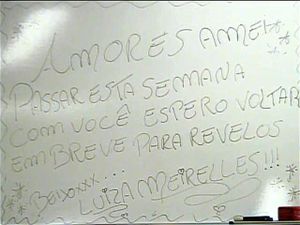 AMORES AMEI
PASSAR ESTA SEMANA
COM VOCÊ ESPERO VOLTAR
EM BREVE PARA REVELOS
Beijoxxx....
LUIZA MEIRELLES!!!